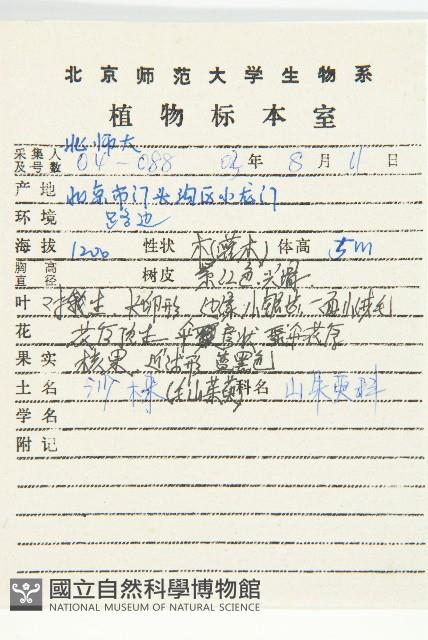 北京师范大学生物系
植物标本室
北师大
采集人及号数 04-088 04年8月11日
产地 北京市门头沟区小龙门
环境 路边
海拔 1200 性状 木(灌木) 体高 5m
胸高直径 树皮 紫红色 光滑
叶 对生 长卵形 边缘小锯齿
花 花序顶生
果实 核果 近球形 蓝黑色
土名 沙梾(毛山茱萸) 科名 山朱萸科
学名
附记
國立自然科學博物館
NATIONAL MUSEUM OF NATURAL SCIENCE